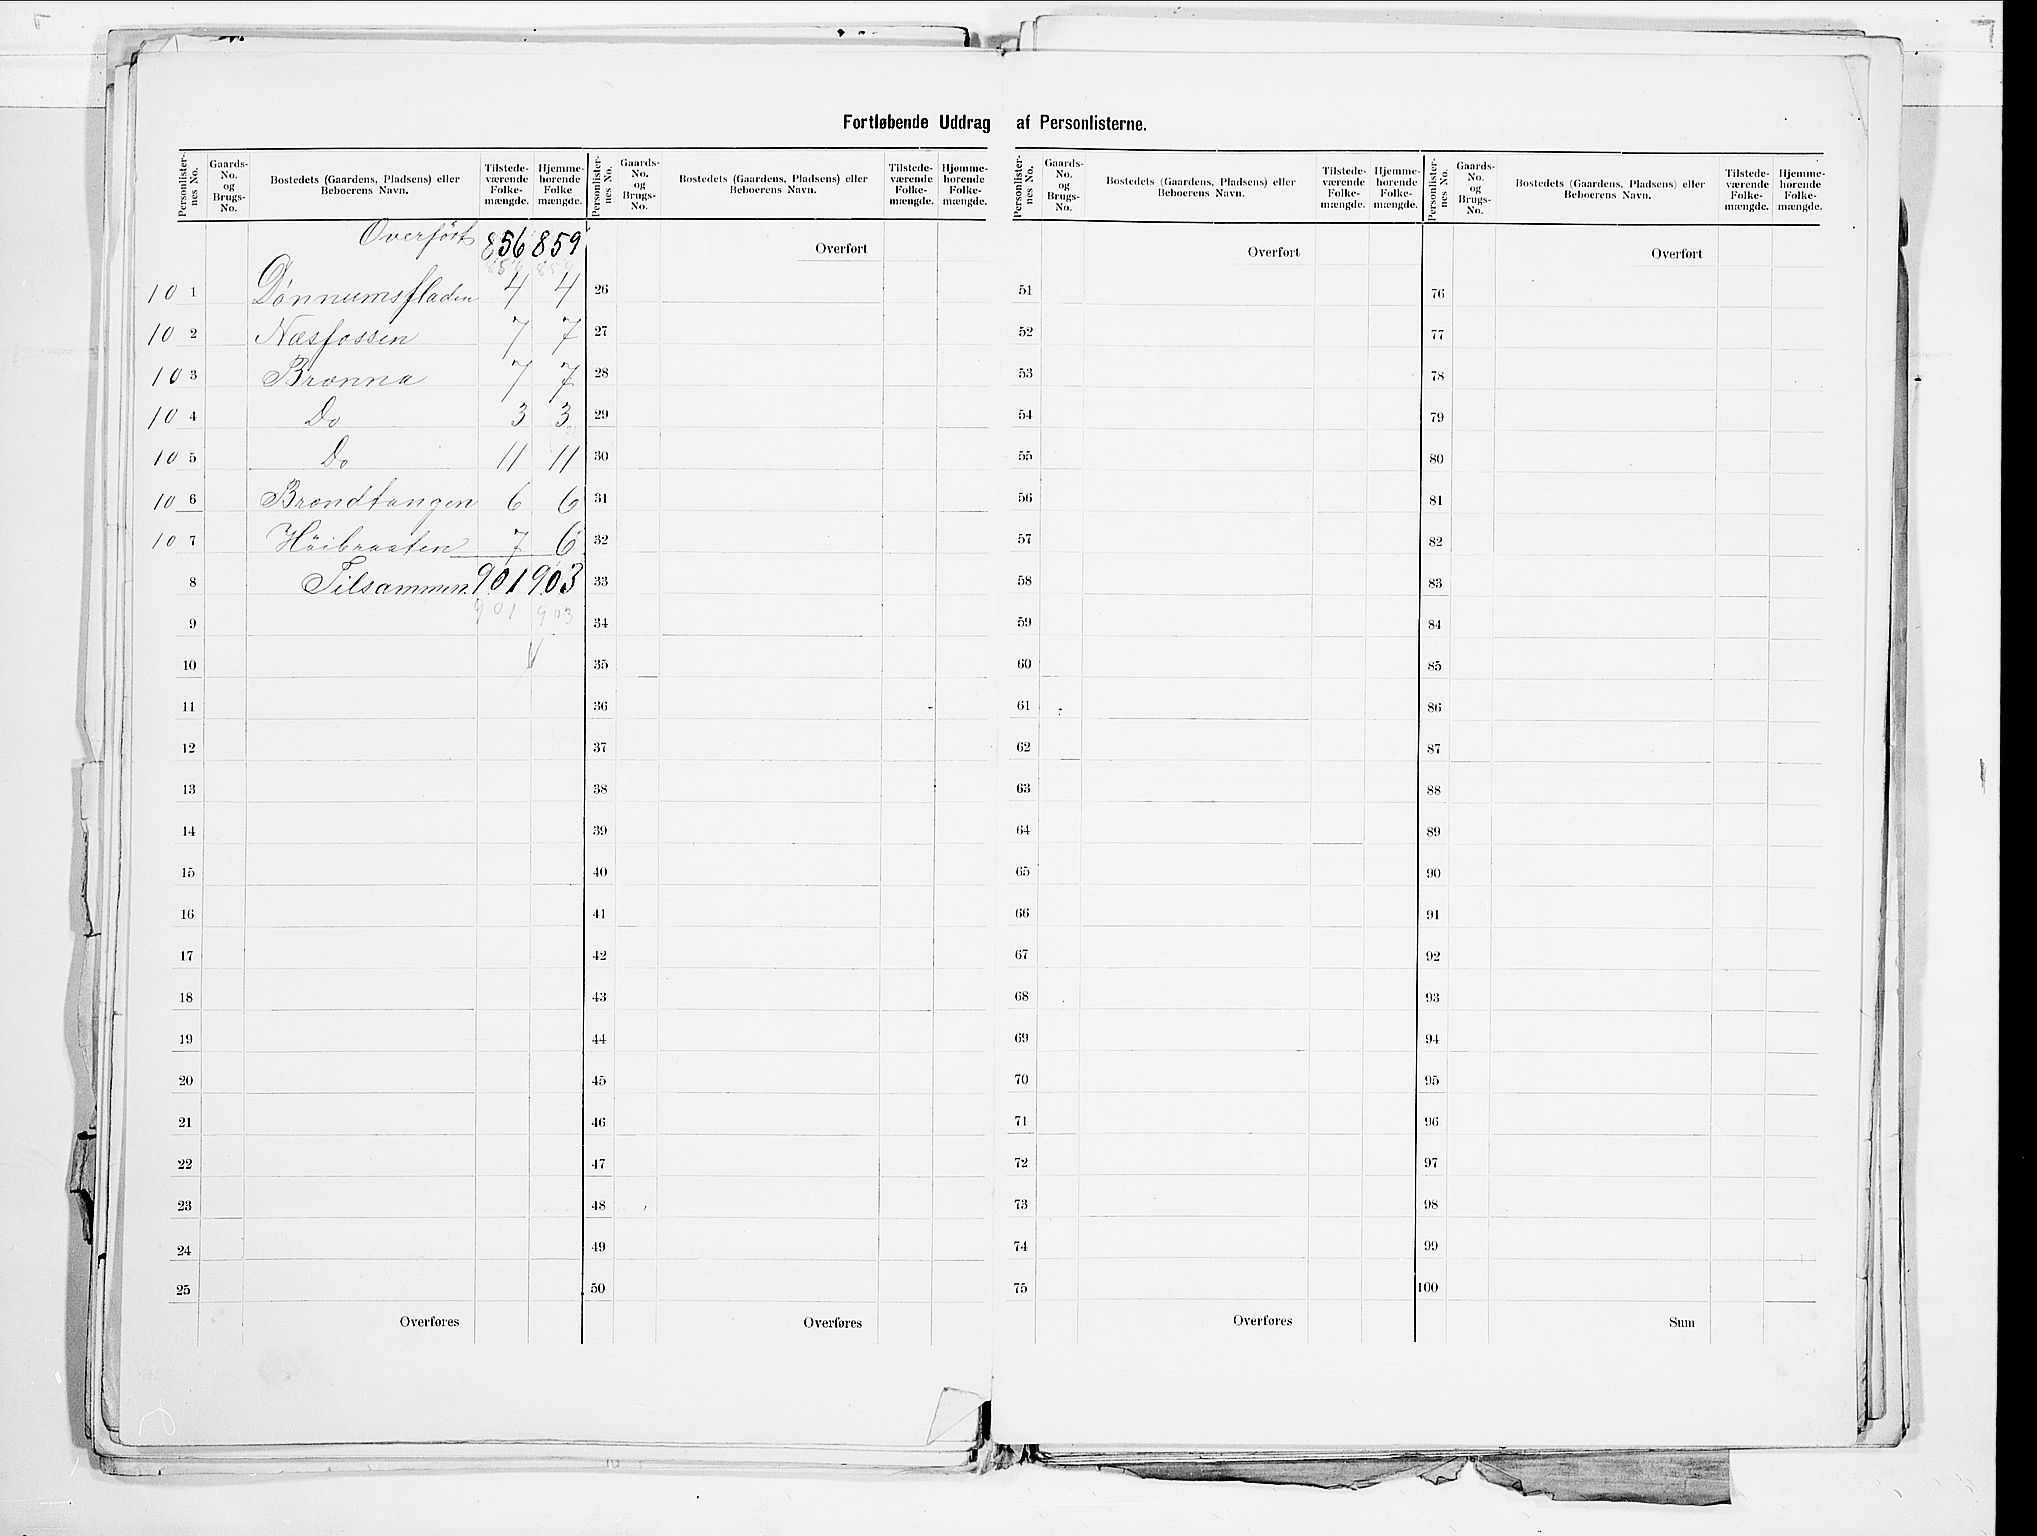 Fortløbende Uddrag af Personlisterne.
Personlisternes No. | Gaards-No. og Brugs-No. | Bostedets (Gaardens, Pladsens) eller Beboerens Navn. | Tilstedeværende Folkemængde. | Hjemmehørende Folkemængde.
Overført 856 859
856 859
10 1 Dønnumsfladen 4 4
10 2 Næsfossen 7 7
10 3 Brænna 7 7
10 4 Do 3 3
10 5 Do 11 11
10 6 Brændtangen 6 6
10 7 Høibraaten 7 6
8 Tilsammen 901 903
9 901 903
10
11
12
13
14
15
16
17
18
19
20
21
22
23
24
25
Overføres
Personlisternes No. | Gaards-No. og Brugs-No. | Bostedets (Gaardens, Pladsens) eller Beboerens Navn. | Tilstedeværende Folkemængde. | Hjemmehørende Folkemængde.
Overført
26
27
28
29
30
31
32
33
34
35
36
37
38
39
40
41
42
43
44
45
46
47
48
49
50
Overføres
Personlisternes No. | Gaards-No. og Brugs-No. | Bostedets (Gaardens, Pladsens) eller Beboerens Navn. | Tilstedeværende Folkemængde. | Hjemmehørende Folkemængde.
Overført
51
52
53
54
55
56
57
58
59
60
61
62
63
64
65
66
67
68
69
70
71
72
73
74
75
Overføres
Personlisternes No. | Gaards-No. og Brugs-No. | Bostedets (Gaardens, Pladsens) eller Beboerens Navn. | Tilstedeværende Folkemængde. | Hjemmehørende Folkemængde.
Overført
76
77
78
79
80
81
82
83
84
85
86
87
88
89
90
91
92
93
94
95
96
97
98
99
100
Sum